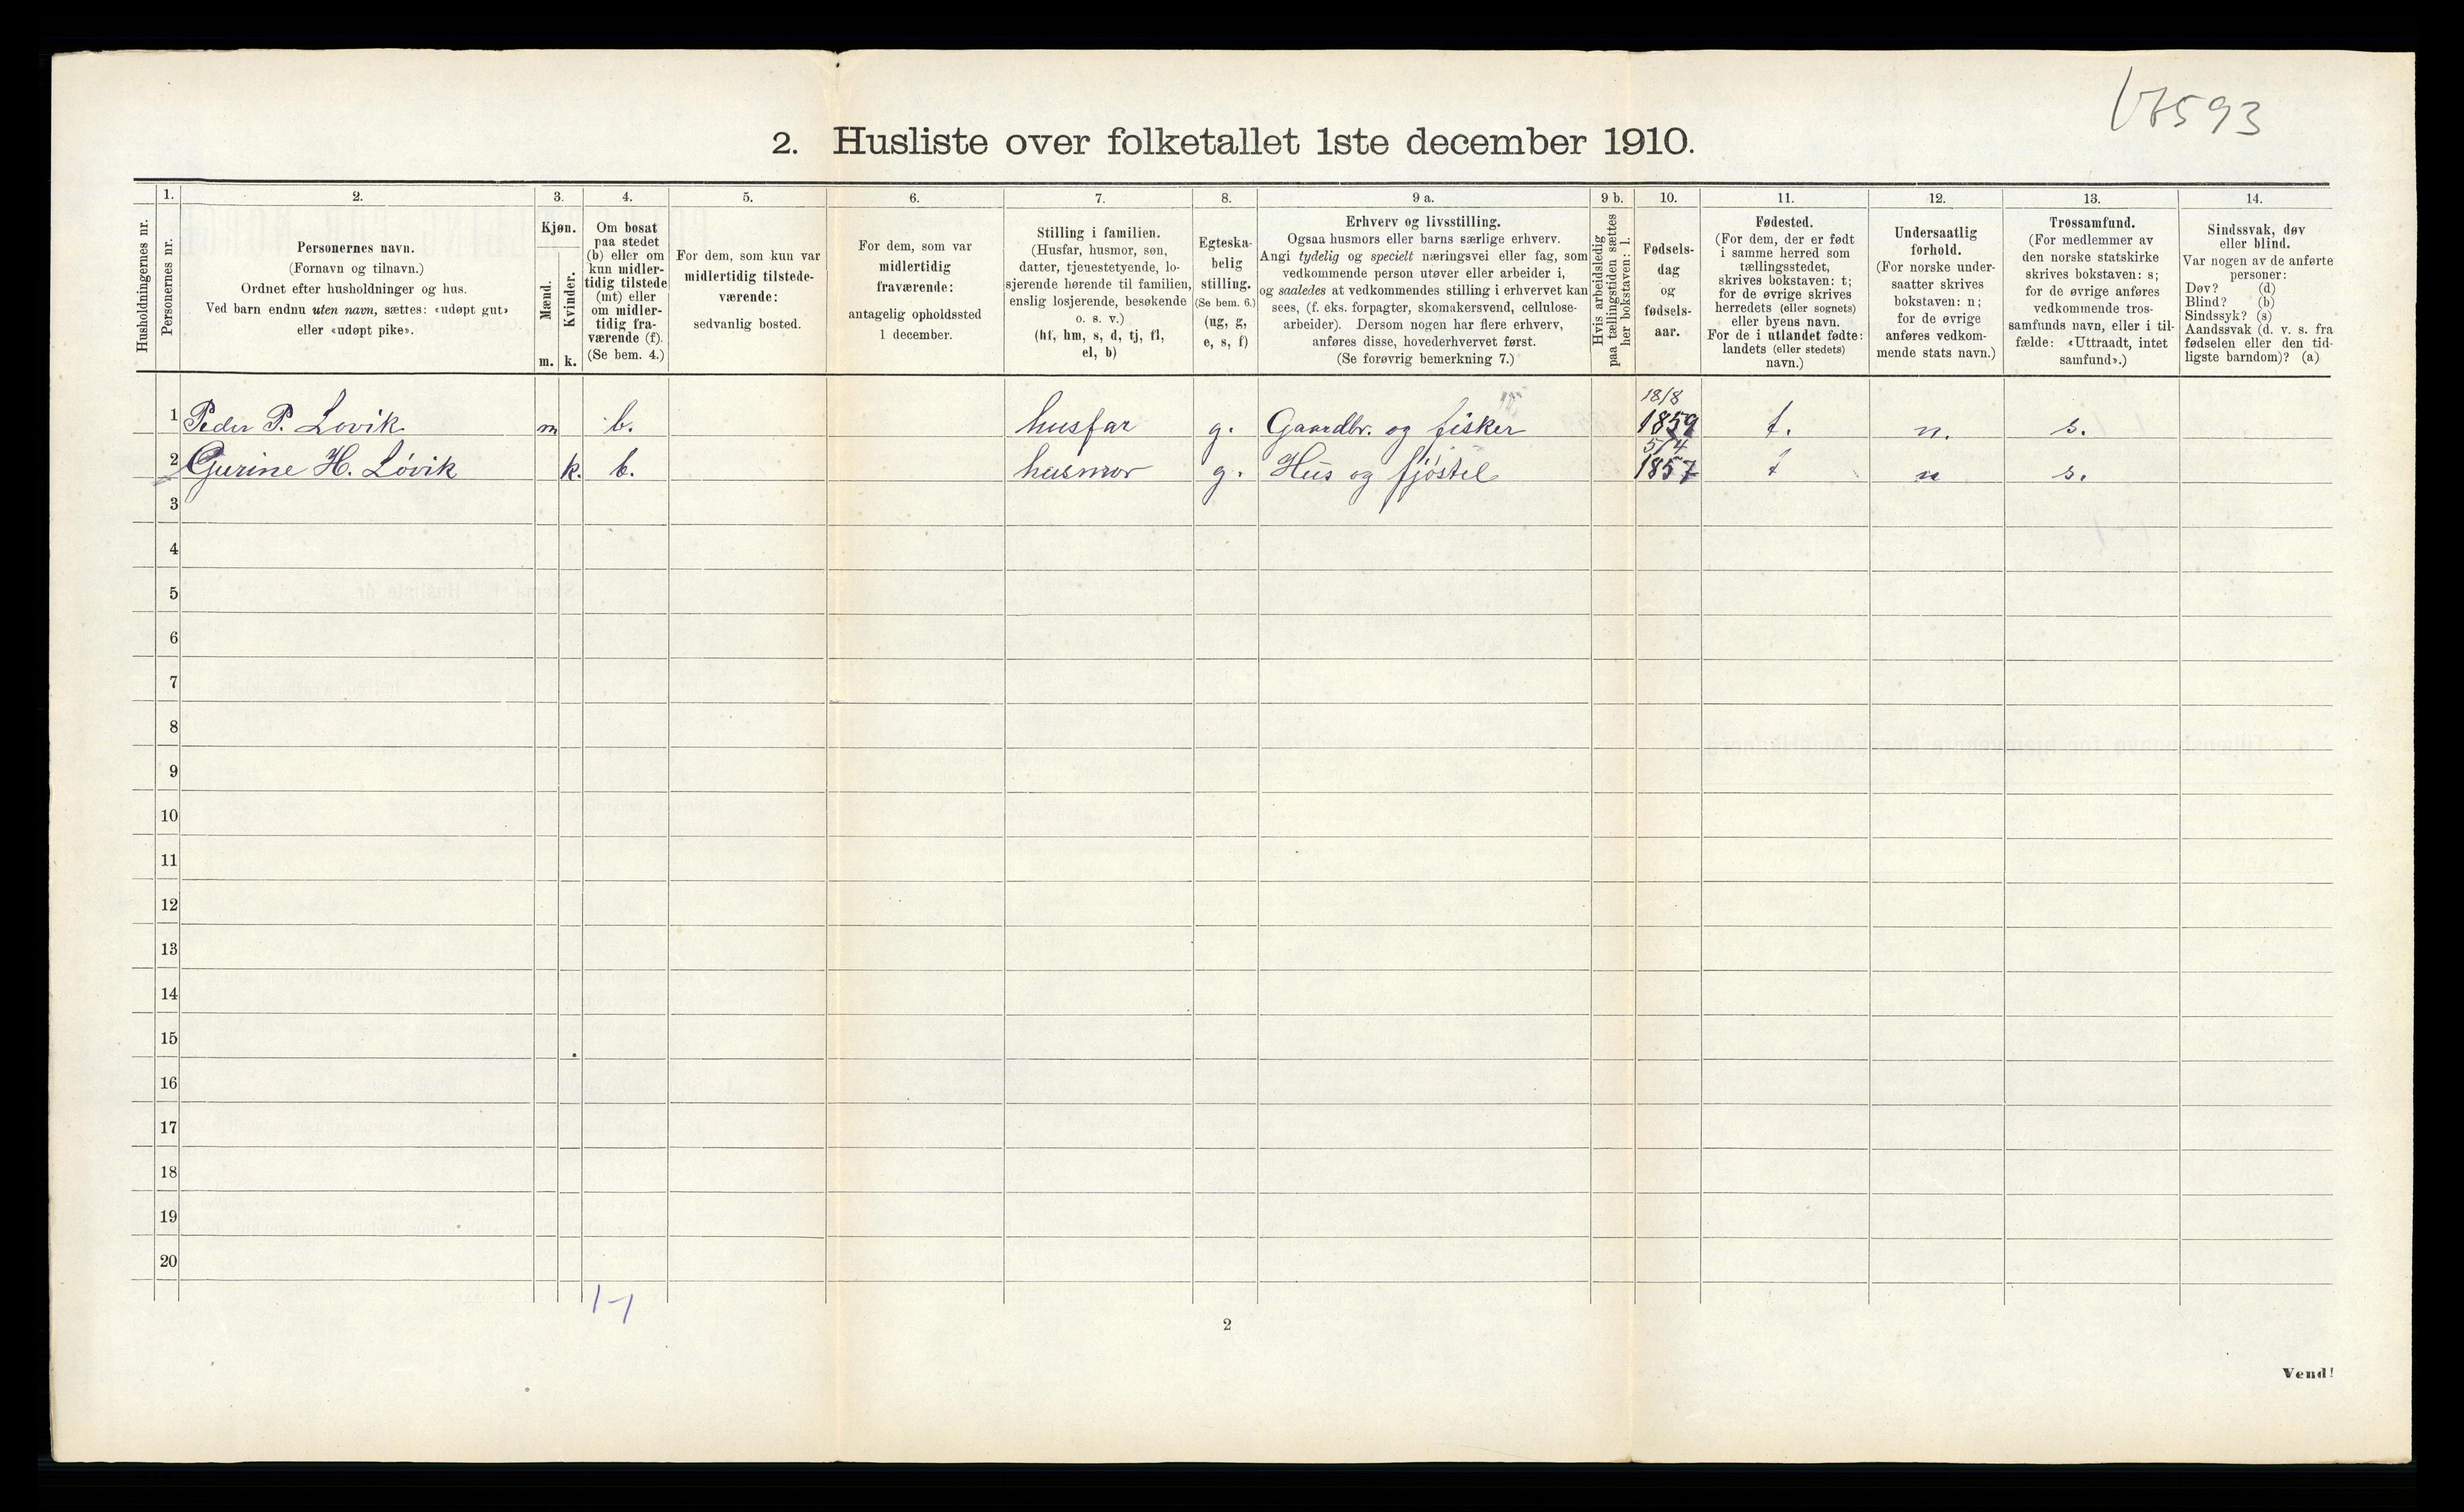 V7593
2. Husliste over folketallet 1ste december 1910.
Husholdningernes nr.
1.
Personernes nr.
2.
Personernes navn.
(Fornavn og tilnavn.)
Ordnet efter husholdninger og hus.
Ved barn endnu uten navn, sættes: «udøpt gut»
eller «udøpt pike».
3.
Kjøn.
Mænd.
Kvinder.
m. k.
4.
Om bosat
paa stedet
(b) eller om
kun midler-
tidig tilstede
(mt) eller
om midler-
tidig fra-
værende (f).
(Se bem. 4.)
5.
For dem, som kun var
midlertidig tilstede-
værende:
sedvanlig bosted.
6.
For dem, som var
midlertidig
fraværende:
antagelig opholdssted
1 december.
7.
Stilling i familien.
(Husfar, husmor, søn,
datter, tjenestetyende, lo-
sjerende hørende til familien,
enslig losjerende, besøkende
o. s. v.)
(hf, hm, s, d, tj, fl,
el, b)
8.
Egteska-
belig
stilling.
(Se bem. 6.)
(ug, g,
e, s, f)
9 a.
Erhverv og livsstilling.
Ogsaa husmors eller barns særlige erhverv.
Angi tydelig og specielt næringsvei eller fag, som
vedkommende person utøver eller arbeider i,
og saaledes at vedkommendes stilling i erhvervet kan
sees, (f. eks. forpagter, skomakersvend, cellulose-
arbeider). Dersom nogen har flere erhverv,
anføres disse, hovederhvervet først.
(Se forøvrig bemerkning 7.)
9 b.
Hvis arbeidsledig
paa tællingstiden sættes
her bokstaven: l.
10.
Fødsels-
dag
og
fødsels-
aar.
11.
Fødested.
(For dem, der er født
i samme herred som
tællingsstedet,
skrives bokstaven: t;
for de øvrige skrives
herredets (eller sognets)
eller byens navn.
For de i utlandet fødte:
landets (eller stedets)
navn.)
12.
Undersaatlig
forhold.
(For norske under-
saatter skrives
bokstaven: n;
for de øvrige
anføres vedkom-
mende stats navn.)
13.
Trossamfund.
(For medlemmer av
den norske statskirke
skrives bokstaven: s;
for de øvrige anføres
vedkommende tros-
samfunds navn, eller i til-
fælde: «Uttraadt, intet
samfund».)
14.
Sindssvak, døv
eller blind.
Var nogen av de anførte
personer:
Døv? (d)
Blind? (b)
Sindssyk? (s)
Aandssvak (d. v. s. fra
fødselen eller den tid-
ligste barndom)? (a)
18/8
1 Peder P. Lovik m b. husfar g. Gaardbr. og fisker 1859 t. n. s.
5/4
2 Gurine H. Lövik k. b. husmor g. Hus og fjöstel 1857 t n s.
3
4
5
6
7
8
9
10
11
12
13
14
15
16
17
18
19
20
1-1
2
Vend!